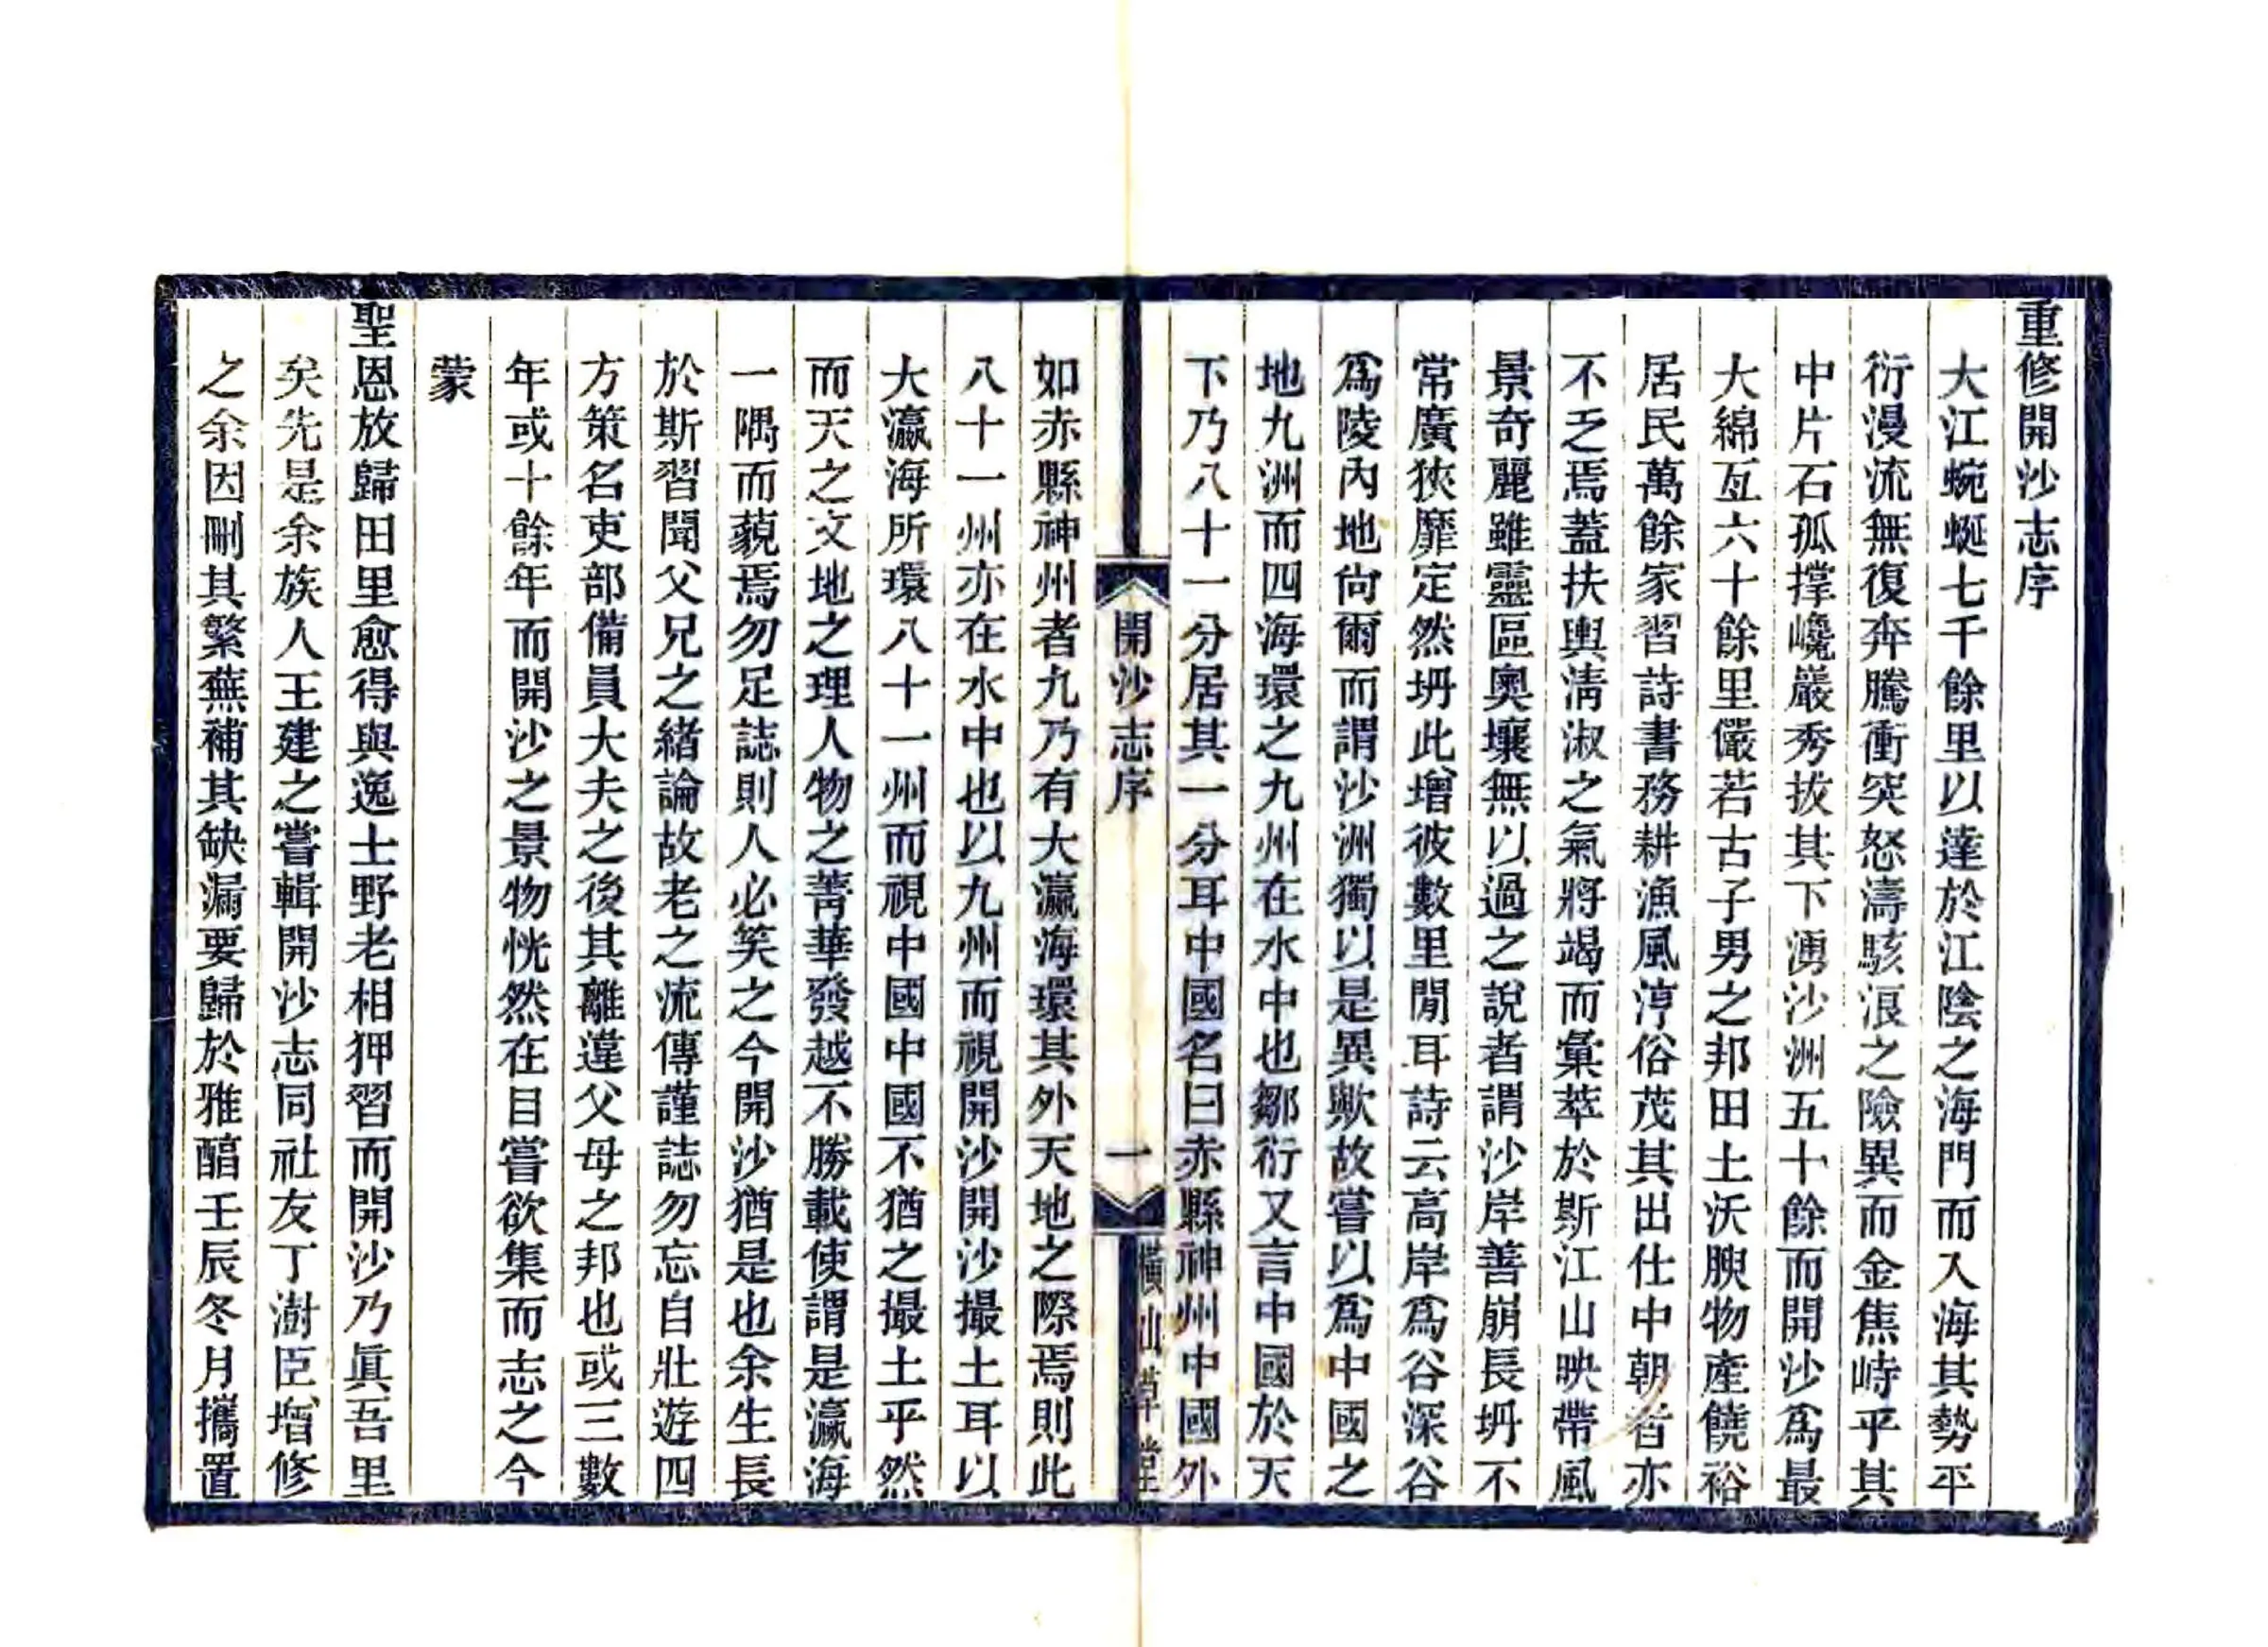 重修開沙志序
大江蜿蜒七千餘里以達於江陰之海門而入海其勢平
衍漫流無復奔騰衝突怒濤駭浪之險異而金焦峙乎其
中片石孤撑巉巖秀拔其下湧沙洲五十餘而開沙爲最
大綿亙六十餘里儼若古子男之邦田土沃腴物產饒裕
居民萬餘家習詩書務耕漁風淳俗茂其出仕中朝者亦
不乏焉蓋扶輿淸淑之氣將竭而彙萃於斯江山映帶風
景奇麗雖靈區奧壤無以過之說者謂沙岸善崩長坍不
常廣狹靡定然坍此增彼數里閒耳詩云高岸爲谷深谷
爲陵內地尙爾而謂沙洲獨以是異歟故嘗以爲中國之
地九洲而四海環之九州在水中也鄒衍又言中國於天
下乃八十一分居其一分耳中國名曰赤縣神州中國外
開沙志序
一
橫山草堂
如赤縣神州者九乃有大瀛海環其外天地之際焉則此
八十一州亦在水中也以九州而視開沙開沙撮土耳以
大瀛海所環八十一州而視中國中國不猶之撮土乎然
而天之文地之理人物之菁華發越不勝載使謂是瀛海
一隅而藐焉勿足誌則人必笑之今開沙猶是也余生長
於斯習聞父兄之緒論故老之流傳謹誌勿忘自壯遊四
方策名吏部備員大夫之後其離違父母之邦也或三數
年或十餘年而開沙之景物恍然在目嘗欲集而志之今
蒙
聖恩放歸田里愈得與逸士野老相狎習而開沙乃眞吾里
矣先是余族人王建之嘗輯開沙志同社友丁澍臣增修
之余因刪其繁蕪補其缺漏要歸於雅醕壬辰冬月攜置